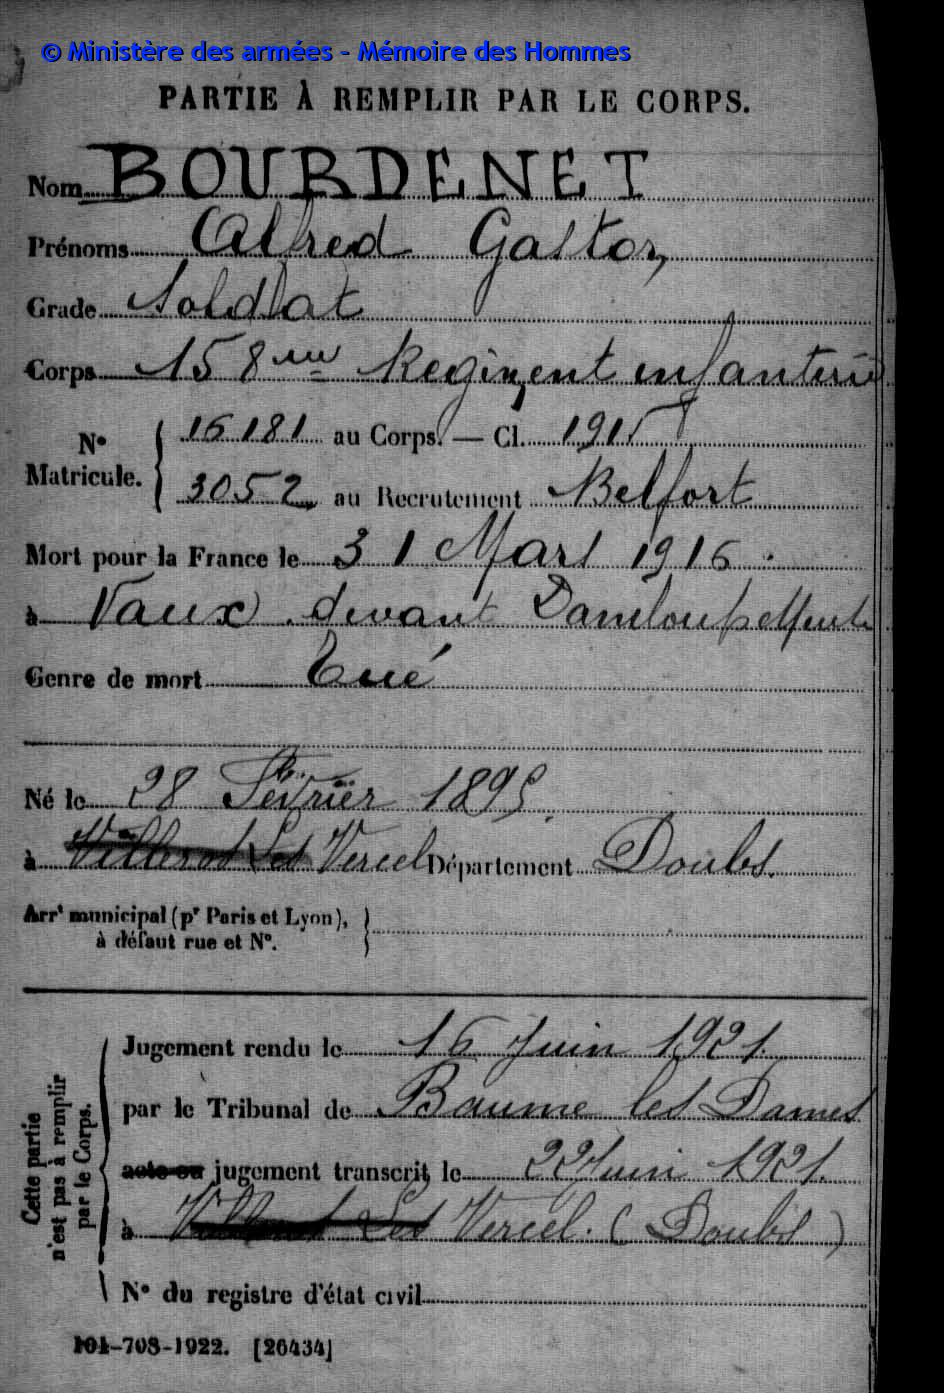 © Ministère des armées - Mémoire des Hommes
PARTIE À REMPLIR PAR LE CORPS.
Nom BOURDENET
Prénoms Alfred Gaston
Grade Soldat
Corps 158me Regiment infanterie
N° Matricule. { 16181 au Corps. — Cl. 1915
3052 au Recrutement Belfort
Mort pour la France le 31 Mars 1916.
à Vaux devant Damloup Meuse
Genre de mort Tué
Né le 28 Février 1895.
à Les Vercel Département Doubs.
Arrt municipal (pr Paris et Lyon),
à défaut rue et N°.
Cette partie n'est pas à remplir par le Corps.
Jugement rendu le 16 Juin 1921.
par le Tribunal de Baume les Dames
acte ou jugement transcrit le 22 Juin 1921.
à Les Vercel. (Doubs)
N° du registre d'état civil
101-708-1922. [26434]